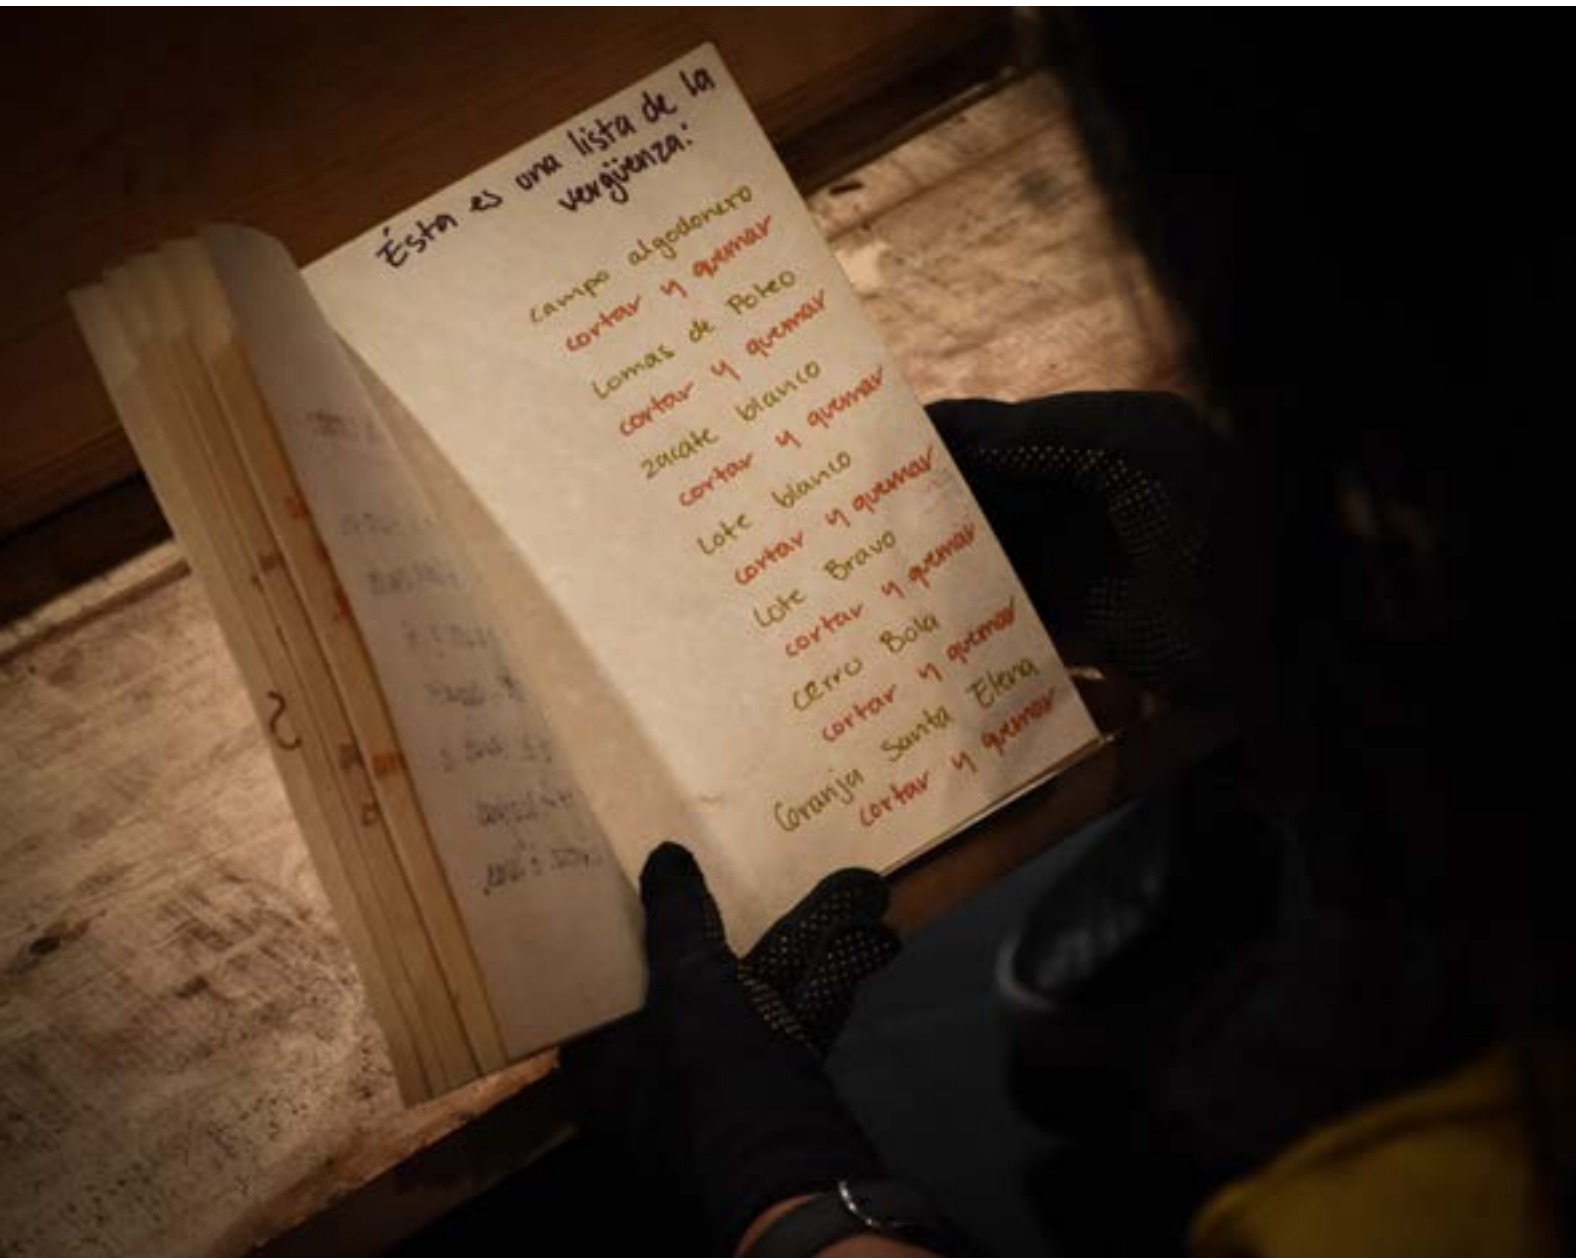 Ésta es una lista de la
vergüenza:
campo algodonero
cortar y quemar
Lomas de Poleo
cortar y quemar
zacate blanco
cortar y quemar
Lote blanco
cortar y quemar
Lote Bravo
cortar y quemar
cerro Bola
cortar y quemar
Granja Santa Elena
cortar y quemar